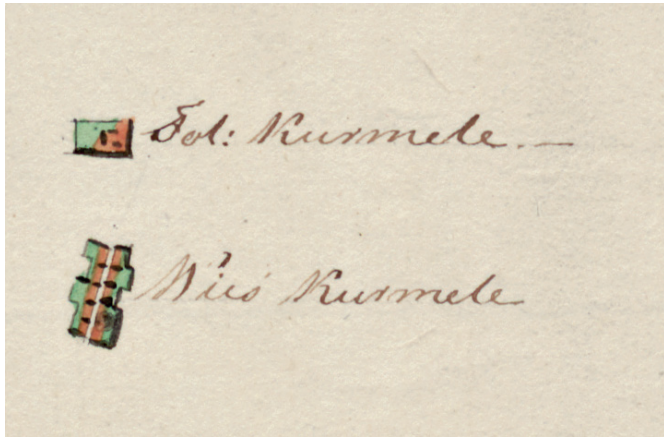 Fol: Kurmele. —
Wieś Kurmele